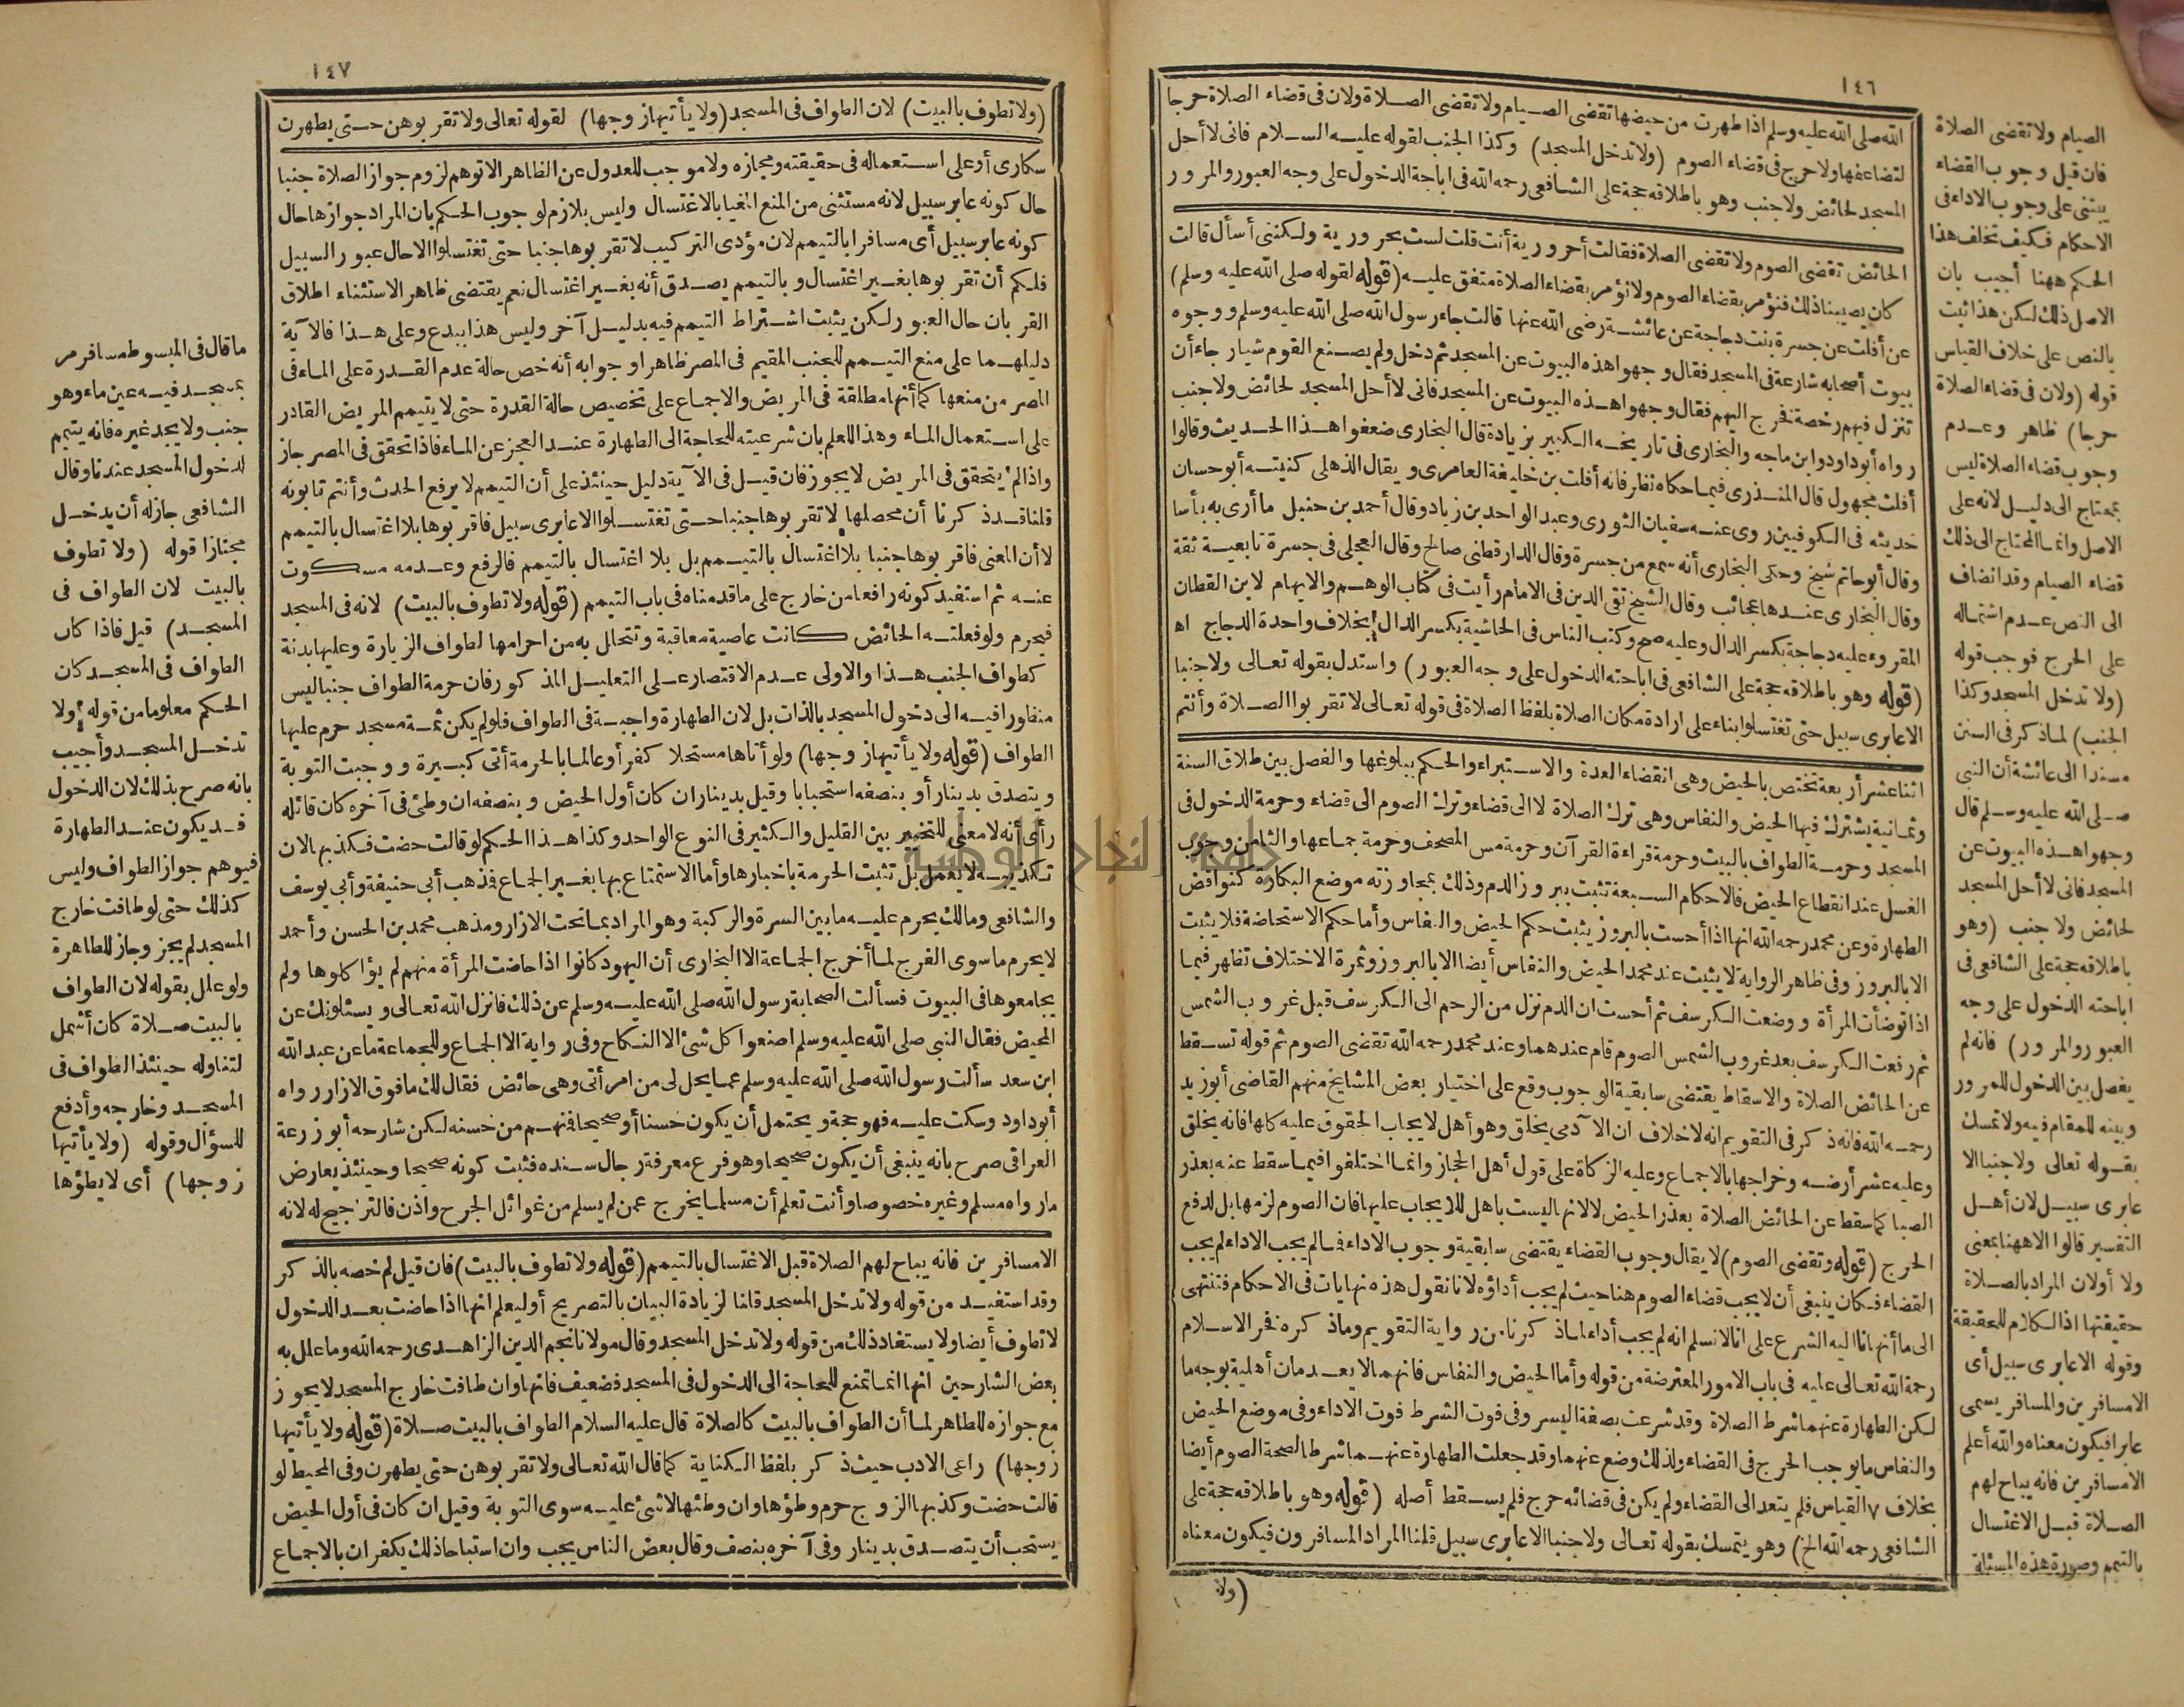 ١٤٦
الله صلى الله عليه وسلم اذا طهرت من حيضها تقضى الصيام ولا تقضى الصلاة ولان فى قضاء الصلاة حرجا
لتضاعفها ولا حرج فى قضاء الصوم (ولا تدخل المسجد) وكذا الجنب لقوله عليه السلام فانى لا أحل
المسجد لحائض ولا جنب وهو باطلاقه حجة على الشافعى رحمه الله فى اباحة الدخول على وجه العبور والمرور
الحائض تقضى الصوم ولا تقضى الصلاة فقالت أحرورية أنت قلت لست بحرورية ولكننى أسأل قالت
كان يصيبنا ذلك فنؤمر بقضاء الصوم ولا نؤمر بقضاء الصلاة متفق عليه (قوله لقوله صلى الله عليه وسلم)
عن أفلت عن جسرة بنت دجاجة عن عائشة رضى الله عنها قالت جاء رسول الله صلى الله عليه وسلم ووجوه
بيوت أصحابه شارعة فى المسجد فقال وجهوا هذه البيوت عن المسجد ثم دخل ولم يصنع القوم شيأ رجاء أن
تنزل فيهم رخصة فخرج اليهم فقال وجهوا هذه البيوت عن المسجد فانى لا أحل المسجد لحائض ولا جنب
رواه أبو داود وابن ماجه والبخارى فى تاريخه الكبير بزيادة قال البخارى ضعفوا هذا الحديث وقالوا
أفلت مجهول قال المنذرى فيما حكاه نظر فانه أفلت بن خليفة العامرى ويقال الذهلى كنيته أبو حسان
حديثه فى الكوفيين روى عنه سفيان الثورى وعبد الواحد بن زياد وقال أحمد بن حنبل ما أرى به بأسا
وقال أبو حاتم شيخ وحكى البخارى أنه سمع من جسرة وقال الدارقطنى صالح وقال العجلى فى جسرة تابعية ثقة
وقال البخارى عندها عجائب وقال الشيخ تقى الدين فى الامام رأيت فى كتاب الوهم والايهام لابن القطان
المقروء عليه دجاجة بكسر الدال وعليه صح وكتب الناس فى الحاشية بكسر الدال بخلاف واحدة الدجاج اه
(قوله وهو باطلاقه حجة على الشافعى فى اباحته الدخول على وجه العبور) واستدل بقوله تعالى ولا جنبا
الا عابرى سبيل حتى تغتسلوا بناء على ارادة مكان الصلاة بلفظ الصلاة فى قوله تعالى لا تقربوا الصلاة وأنتم
اثنا عشر أربعة تختص بالحيض وهى انقضاء العدة والاستبراء والحكم ببلوغها والفصل بين طلاق السنة
وثمانية يشترك فيها الحيض والنفاس وهى ترك الصلاة لا الى قضاء وترك الصوم الى قضاء وحرمة الدخول فى
المسجد وحرمة الطواف بالبيت وحرمة قراءة القرآن وحرمة مس المصحف وحرمة جماعها والثامن وجوب
الغسل عند انقطاع الحيض فالاحكام السبعة تثبت ببروز الدم وذلك بمجاوزته موضع البكارة كنواقض
الطهارة وعن محمد رحمه الله انها اذا أحست بالبروز يثبت حكم الحيض والنفاس وأما حكم الاستحاضة فلا يثبت
الا بالبروز وفى ظاهر الرواية لا يثبت عند محمد الحيض والنفاس أيضا الا بالبروز وثمرة الاختلاف تظهر فيما
اذا توضأت المرأة ووضعت الكرسف ثم أحست ان الدم نزل من الرحم الى الكرسف قبل غروب الشمس
ثم رفعت الكرسف بعد غروب الشمس الصوم قام عندهما وعند محمد رحمه الله تقضى الصوم ثم قوله تسقط
عن الحائض الصلاة والاسقاط يقتضى سابقية الوجوب وقع على اختيار بعض المشايخ منهم القاضى أبو زيد
رحمه الله فانه ذكر فى التقويم انه لا خلاف ان الآدمى يخلق وهو أهل لايجاب الحقوق عليه كلها فانه يخلق
وعليه عشر أرضه وخراجها بالاجماع وعليه الزكاة على قول أهل الحجاز وانما اختلفوا فيما سقط عنه بعذر
الصبا كما سقط عن الحائض الصلاة بعذر الحيض لا لانها ليست باهل للايجاب عليها فان الصوم لزمها بل لدفع
الحرج (قوله وتقضى الصوم) لا يقال وجوب القضاء يقتضى سابقية وجوب الاداء فما لم يجب الاداء لم يجب
القضاء فكان ينبغى أن لا يجب قضاء الصوم هنا حيث لم يجب أداؤه لانا نقول هذه نهايات فى الاحكام فتنتهى
الى ما أنهانا اليه الشرع على انا لا نسلم انه لم يجب أداء لما ذكرنا من رواية التقويم وما ذكره فخر الاسلام
رحمة الله تعالى عليه فى باب الامور المعترضة من قوله وأما الحيض والنفاس فانهما لا يعدمان أهلية بوجه ما
لكن الطهارة عنهما شرط الصلاة وقد شرعت بصفة اليسر وفى فوت الشرط فوت الاداء وفى موضع الحيض
والنفاس ما يوجب الحرج فى القضاء ولذلك وضع عنهما وقد جعلت الطهارة عنهما شرطا لصحة الصوم أيضا
بخلاف ٧ القياس فلم يتعد الى القضاء ولم يكن فى قضائه حرج فلم يسقط أصله (قوله وهو باطلاقه حجة على
الشافعى رحمه الله الخ) وهو يتمسك بقوله تعالى ولا جنبا الا عابرى سبيل قلنا المراد المسافرون فيكون معناه
(ولا
الصيام ولا تقضى الصلاة
فان قيل وجوب القضاء
يبتنى على وجوب الاداء فى
الاحكام فكيف تخلف هذا
الحكم ههنا أجيب بان
الاصل ذلك لكن هذا ثبت
بالنص على خلاف القياس
قوله (ولان فى قضاء الصلاة
حرجا) ظاهر وعدم
وجوب قضاء الصلاة ليس
بمحتاج الى دليل لانه على
الاصل وانما المحتاج الى ذلك
قضاء الصيام وقد انضاف
الى النص عدم اشتماله
على الحرج فوجب قوله
(ولا تدخل المسجد وكذا
الجنب) لما ذكر فى السنن
مسندا الى عائشة أن النبى
صلى الله عليه وسلم قال
وجهوا هذه البيوت عن
المسجد فانى لا أحل المسجد
لحائض ولا جنب (وهو
باطلاقه حجة على الشافعى فى
اباحته الدخول على وجه
العبور والمرور) فانه لم
يفصل بين الدخول للمرور
وبينه للمقام فيه ولا تمسك
بقوله تعالى ولا جنبا الا
عابرى سبيل لان أهل
التفسير قالوا الا ههنا بمعنى
ولا أو لان المراد بالصلاة
حقيقتها اذ الكلام للحقيقة
وقوله الا عابرى سبيل أى
الا مسافرين والمسافر يسمى
عابرا فيكون معناه والله أعلم
الا مسافرين فانه يباح لهم
الصلاة قبل الاغتسال
بالتيمم وصورة هذه المسئلة
١٤٧
(ولا تطوف بالبيت) لان الطواف فى المسجد (ولا يأتيها زوجها) لقوله تعالى ولا تقربوهن حتى يطهرن
سكارى أو على استعماله فى حقيقته ومجازه ولا موجب للعدول عن الظاهر الا توهم لزوم جواز الصلاة جنبا
حال كونه عابر سبيل لانه مستثنى من المنع المغيا بالاغتسال وليس بلازم لوجوب الحكم بان المراد جوازها حال
كونه عابر سبيل أى مسافرا بالتيمم لان مؤدى التركيب لا تقربوها جنبا حتى تغتسلوا الا حال عبور السبيل
فلكم أن تقربوها بغير اغتسال وبالتيمم يصدق أنه بغير اغتسال نعم يقتضى ظاهر الاستثناء اطلاق
القربان حال العبور لكن يثبت اشتراط التيمم فيه بدليل آخر وليس هذا ببدع وعلى هذا فالآية
دليلهما على منع التيمم للجنب المقيم فى المصر ظاهرا وجوابه أنه خص حالة عدم القدرة على الماء فى
المصر من منعها كما أنها مطلقة فى المريض والاجماع على تخصيص حالة القدرة حتى لا يتيمم المريض القادر
على استعمال الماء وهذا للعلم بان شرعيته للحاجة الى الطهارة عند العجز عن الماء فاذا تحقق فى المصر جاز
واذا لم يتحقق فى المريض لا يجوز فان قيل فى الآية دليل حينئذ على أن التيمم لا يرفع الحدث وأنتم تأبونه
قلنا قد ذكرنا أن محصلها لا تقربوها جنبا حتى تغتسلوا الا عابرى سبيل فاقربوها بلا اغتسال بالتيمم
لا أن المعنى فاقربوها جنبا بلا اغتسال بالتيمم بل بلا اغتسال بالتيمم فالرفع وعدمه مسكوت
عنه ثم استفيد كونه رافعا من خارج على ما قدمناه فى باب التيمم (قوله ولا تطوف بالبيت) لانه فى المسجد
فيحرم ولو فعلته الحائض كانت عاصية معاقبة وتتحلل به من احرامها لطواف الزيارة وعليها بدنة
كطواف الجنب هذا والاولى عدم الاقتصار على التعليل المذكور فان حرمة الطواف جنبا ليس
منظورا فيه الى دخول المسجد بالذات بل لان الطهارة واجبة فى الطواف فلو لم يكن ثمة مسجد حرم عليها
الطواف (قوله ولا يأتيها زوجها) ولو أتاها مستحلا كفر أو عالما بالحرمة أتى كبيرة ووجبت التوبة
ويتصدق بدينار أو بنصفه استحبابا وقيل بدينار ان كان أول الحيض وبنصفه ان وطئ فى آخره كان قائله
رأى أنه لا معنى للتخيير بين القليل والكثير فى النوع الواحد وكذا هذا الحكم لو قالت حضت فكذبها لان
تكذيبه لا يعمل بل تثبت الحرمة باخبارها وأما الاستمتاع بها بغير الجماع فذهب أبى حنيفة وأبى يوسف
والشافعى ومالك يحرم عليه ما بين السرة والركبة وهو المراد بما تحت الازار ومذهب محمد بن الحسن وأحمد
لا يحرم ما سوى الفرج لما أخرج الجماعة الا البخارى أن اليهود كانوا اذا حاضت المرأة منهم لم يؤاكلوها ولم
يجامعوها فى البيوت فسألت الصحابة رسول الله صلى الله عليه وسلم عن ذلك فانزل الله تعالى ويسئلونك عن
المحيض فقال النبى صلى الله عليه وسلم اصنعوا كل شئ الا النكاح وفى رواية الا الجماع وللجماعة ما عن عبد الله
ابن سعد سألت رسول الله صلى الله عليه وسلم عما يحل لى من امرأتى وهى حائض فقال لك ما فوق الازار رواه
أبو داود وسكت عليه فهو حجة ويحتمل أن يكون حسنا أو صحيحا فمنهم من حسنه لكن شارحه أبو زرعة
العراقى صرح بانه ينبغى أن يكون صحيحا وهو فرع معرفة رجال سنده فثبت كونه صحيحا وحينئذ يعارض
ما رواه مسلم وغيره خصوصا وأنت تعلم أن مسلما يخرج عمن لم يسلم من غوائل الجرح واذن فالترجيح له لانه
الا مسافرين فانه يباح لهم الصلاة قبل الاغتسال بالتيمم (قوله ولا تطوف بالبيت) فان قيل لم خصه بالذكر
وقد استفيد من قوله ولا تدخل المسجد قلنا لزيادة البيان بالتصريح أو ليعلم انها اذا حاضت بعد الدخول
لا تطوف أيضا ولا يستفاد ذلك من قوله ولا تدخل المسجد وقال مولانا نجم الدين الزاهدى رحمه الله وما علل به
بعض الشارحين انها انما تمنع للحاجة الى الدخول فى المسجد فضعيف فانها وان طافت خارج المسجد لا يجوز
مع جوازه للطاهر لما أن الطواف بالبيت كالصلاة قال عليه السلام الطواف بالبيت صلاة (قوله ولا يأتيها
زوجها) راعى الادب حيث ذكر بلفظ الكناية كما قال الله تعالى ولا تقربوهن حتى يطهرن وفى المحيط لو
قالت حضت وكذبها الزوج حرم وطؤها وان وطئها لا شئ عليه سوى التوبة وقيل ان كان فى أول الحيض
يستحب أن يتصدق بدينار وفى آخره بنصف وقال بعض الناس يجب وان استباحا ذلك يكفران بالاجماع
ما قال فى المبسوط مسافر مر
بمسجد فيه عين ماء وهو
جنب ولا يجد غيره فانه يتيمم
لدخول المسجد عندنا وقال
الشافعى جاز له أن يدخل
مجتازا قوله (ولا تطوف
بالبيت لان الطواف فى
المسجد) قيل فاذا كان
الطواف فى المسجد كان
الحكم معلوما من قوله ولا
تدخل المسجد وأجيب
بانه صرح بذلك لان الدخول
قد يكون عند الطهارة
فيوهم جواز الطواف وليس
كذلك حتى لو طافت خارج
المسجد لم يجز وجاز للطاهرة
ولو علل بقوله لان الطواف
بالبيت صلاة كان أشمل
لتناوله حينئذ الطواف فى
المسجد وخارجه وأدفع
للسؤال وقوله (ولا يأتيها
زوجها) أى لا يطؤها